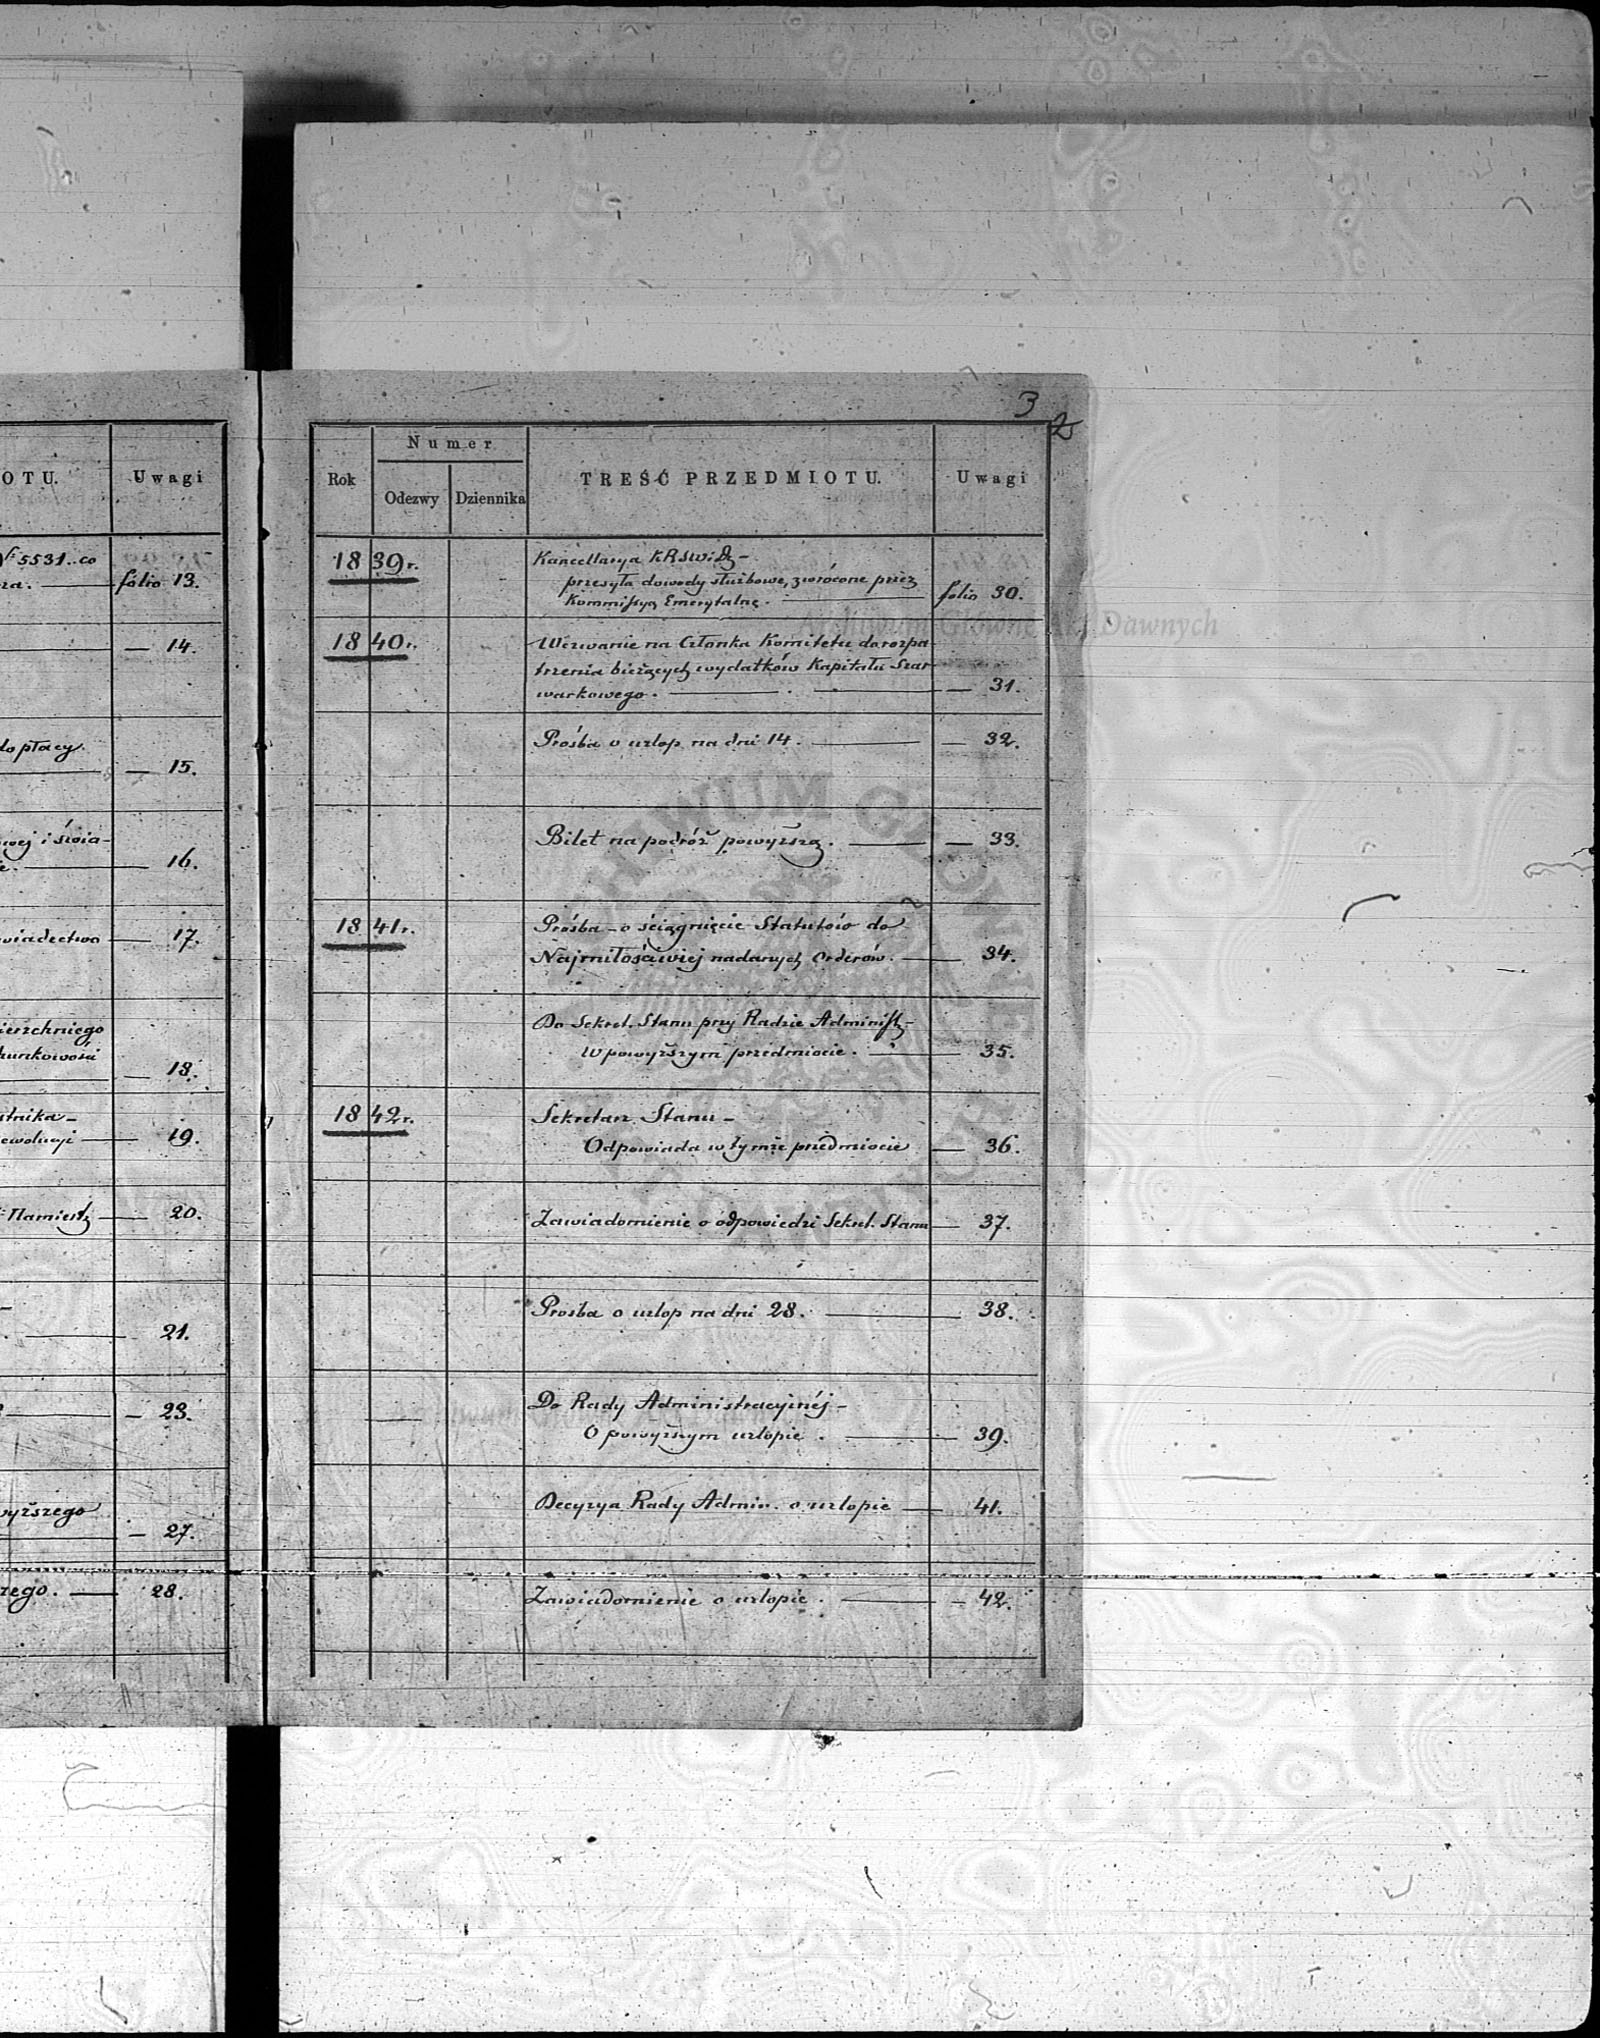 OTU. Uwagi
№ 5531. co
ra. — folio 13.
— 14.
do płacy.
— 15.
wej i świa-
— 16.
wiadectwa — 17.
ierzchniego
hunkowości
— 18.
stnika –
ewolucyi — 19.
Namiestz — 20.
— 21.
— 23.
wyższego
— 27.
zego. — 28.
3
2
Rok Numer TREŚĆ PRZEDMIOTU. Uwagi
Odezwy Dziennika
1839r. Kancellarya KRSWiD –
przesyła dowody służbowe, zwrócone przez
Kommissyą Emerytalną. — folio 30.
1840r. Wezwanie na Członka Komitetu do rozpa
trzenia bieżących wydatków Kapitału Szar
warkowego. — 31.
Prośba o urlop na dni 14. — 32.
Bilet na podróż powyższą. — 33.
1841r. Prośba – o ściągnięcie Statutów do
Najmiłościwiej nadanych Orderów. — 34.
Do Sekret. Stanu przy Radzie Administ –
W powyższym przedmiocie. — 35.
1842r. Sekretarz Stanu –
Odpowiada w tymże przedmiocie — 36.
Zawiadomienie o odpowiedzi Sekret. Stanu — 37.
Prosba o urlop na dni 28. — 38.
Do Rady Administracyjnéj –
O powyższym urlopie. — 39.
Decyzya Rady Admin. o urlopie — 41.
Zawiadomienie o urlopie. — 42.
Archiwum Główne Akt Dawnych
ARCHIWUM GŁÓWNE AKT DAWNYCH
Archiwum Główne Akt Dawnych